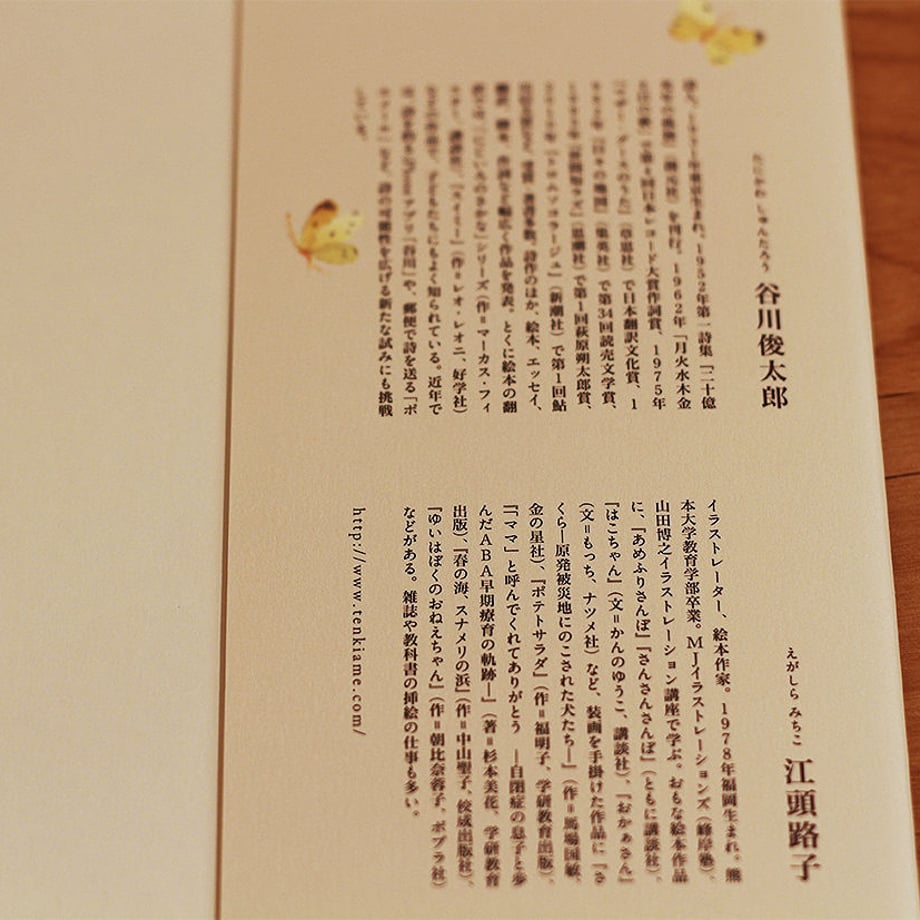 たにかわ しゅんたろう
谷川俊太郎
詩人。1931年東京生まれ。1952年第一詩集『二十億
光年の孤独』（創元社）を刊行。1962年「月火水木金
土日の歌」で第4回日本レコード大賞作詞賞、1975年
『マザー・グースのうた』（草思社）で日本翻訳文化賞、1
982年『日々の地図』（集英社）で第34回読売文学賞、
1993年『世間知ラズ』（思潮社）で第1回萩原朔太郎賞、
2010年『トロムソコラージュ』（新潮社）で第1回鮎
川信夫賞など、受賞・著書多数。詩作のほか、絵本、エッセイ、
翻訳、脚本、作詞など幅広く作品を発表。とくに絵本の翻
訳では「にじいろのさかな」シリーズ（作＝マーカス・フィ
スター、講談社）、『スイミー』（作＝レオ・レオニ、好学社）
などの作品で、子どもたちにもよく知られている。近年で
は、詩を釣るiPhoneアプリ『谷川』や、郵便で詩を送る『ポ
エメール』など、詩の可能性を広げる新たな試みにも挑戦
している。
えがしら みちこ
江頭路子
イラストレーター、絵本作家。1978年福岡生まれ。熊
本大学教育学部卒業。MJイラストレーションズ（峰岸塾）、
山田博之イラストレーション講座で学ぶ。おもな絵本作品
に、『あめふりさんぽ』『さんさんさんぽ』（ともに講談社）、
『はこちゃん』（文＝かんのゆうこ、講談社）、『おかあさん』
（文＝もっち、ナツメ社）など、装画を手掛けた作品に『さ
くら―原発被災地にのこされた犬たち―』（作＝馬場国敏、
金の星社）、『ポテトサラダ』（作＝福明子、学研教育出版）、
『「ママ」と呼んでくれてありがとう ―自閉症の息子と歩
んだABA早期療育の軌跡―』（著＝杉本美花、学研教育
出版）、『春の海、スナメリの浜』（作＝中山聖子、佼成出版社）、
『ゆいはぼくのおねえちゃん』（作＝朝比奈蓉子、ポプラ社）
などがある。雑誌や教科書の挿絵の仕事も多い。
http://www.tenkiame.com/